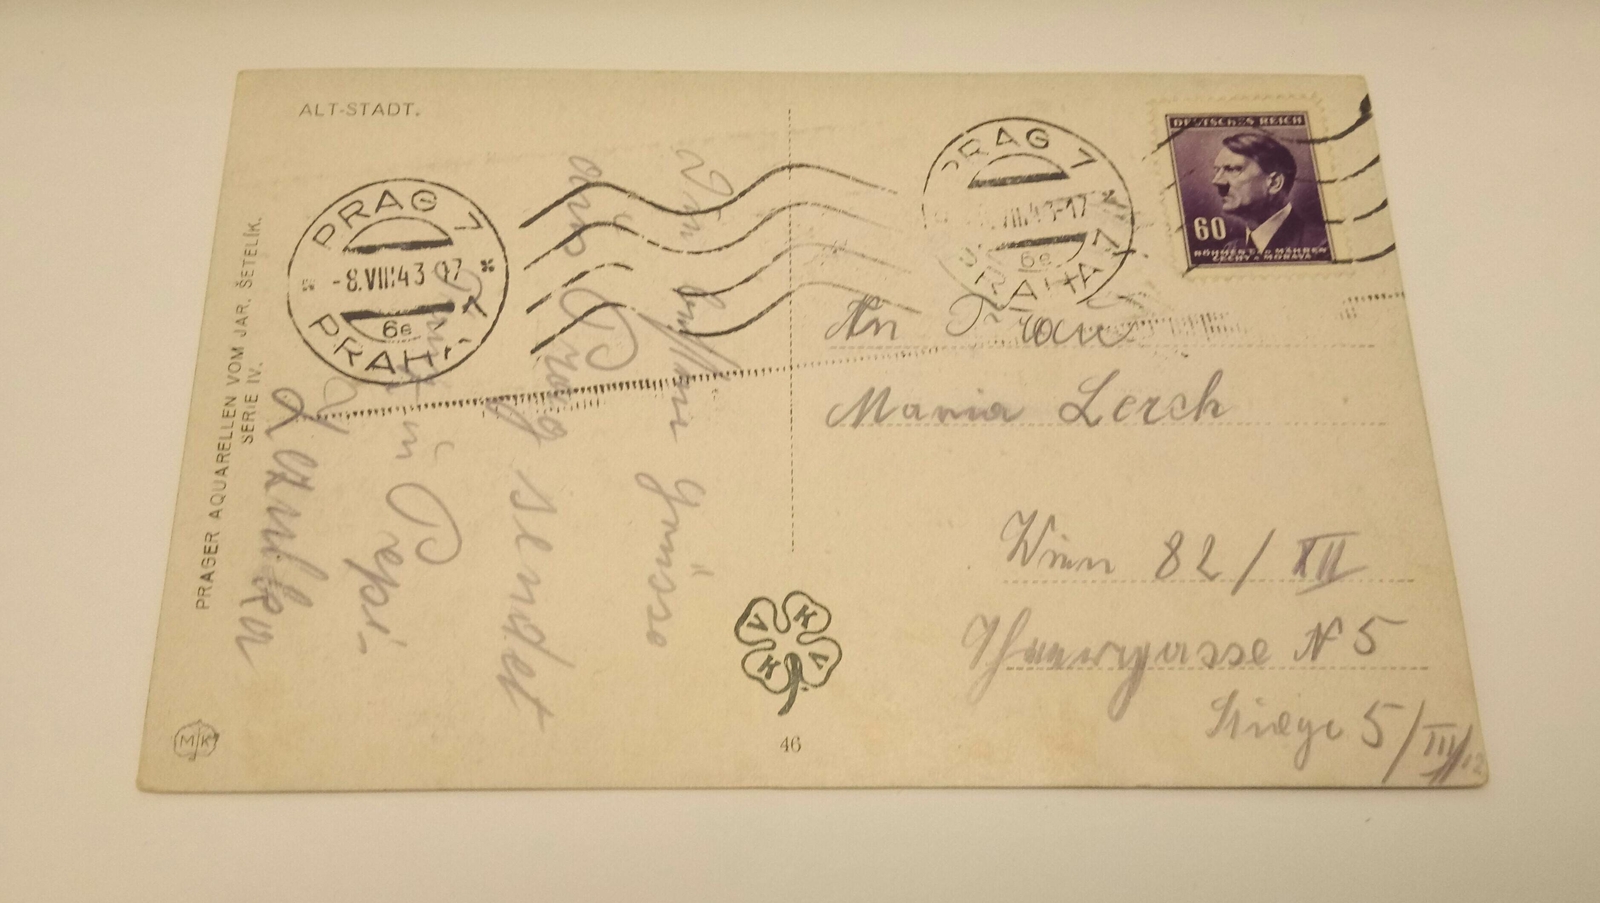 ALT-STADT.
PRAGER AQUARELLEN VOM JAR. ŠETELÍK.
SERIE IV.
PRAG 7
-8.VIII.43 07
6e
PRAHA 7
PRAG 7
VIII.43-17
6e
PRAHA 7
DEUTSCHES REICH
60
BÖHMEN U. MÄHREN
ČECHY A MORAVA
Grüsse
aus Prag sendet
Pepi-
An Frau
Maria Lerch
Wien 82/XII
N 5
Stiege 5/III/12
V K V K
46
M K